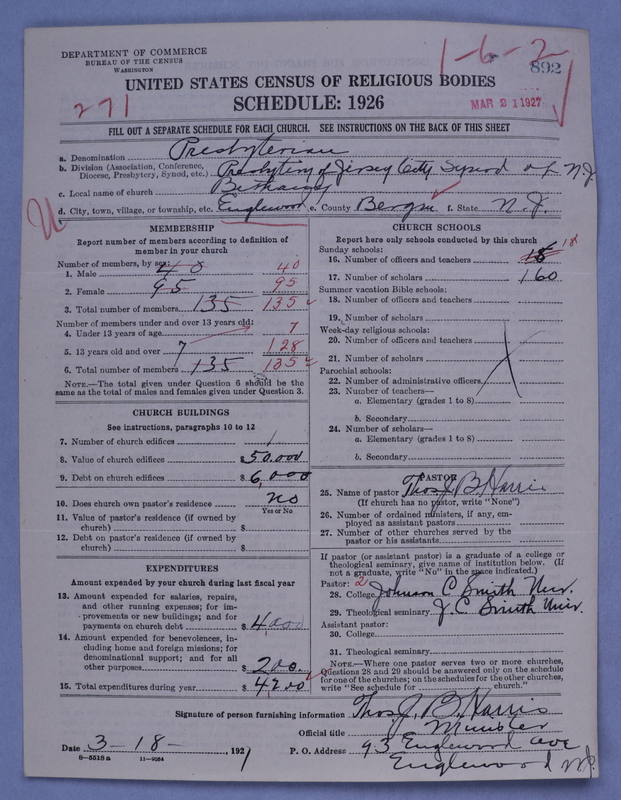 DEPARTMENT OF COMMERCE
BUREAU OF THE CENSUS
WASHINGTON
1-6-2
892
UNITED STATES CENSUS OF RELIGIOUS BODIES
SCHEDULE: 1926
271
MAR 21 1927
FILL OUT A SEPARATE SCHEDULE FOR EACH CHURCH. SEE INSTRUCTIONS ON THE BACK OF THIS SHEET
a. Denomination Presbyterian
b. Division (Association, Conference, Diocese, Presbytery, Synod, etc.) Presbytery of Jersey City Synod of N.J.
c. Local name of church Bethany
d. City, town, village, or township, etc. Englewood e. County Bergen f. State N.J.
U
MEMBERSHIP
Report number of members according to definition of member in your church
Number of members, by sex:
1. Male 40 40
2. Female 95 95
3. Total number of members 135 135
Number of members under and over 13 years old:
4. Under 13 years of age 7
5. 13 years old and over 7 128
6. Total number of members 135 135
NOTE.—The total given under Question 6 should be the same as the total of males and females given under Question 3.
CHURCH BUILDINGS
See instructions, paragraphs 10 to 12
7. Number of church edifices 1
8. Value of church edifices $50.000
9. Debt on church edifices $6,000
10. Does church own pastor's residence no
Yes or No
11. Value of pastor's residence (if owned by church) $
12. Debt on pastor's residence (if owned by church) $
EXPENDITURES
Amount expended by your church during last fiscal year
13. Amount expended for salaries, repairs, and other running expenses; for improvements or new buildings; and for payments on church debt $4000
14. Amount expended for benevolences, including home and foreign missions; for denominational support; and for all other purposes $200.
15. Total expenditures during year $4200
CHURCH SCHOOLS
Report here only schools conducted by this church
Sunday schools:
16. Number of officers and teachers 18 18
17. Number of scholars 160
Summer vacation Bible schools:
18. Number of officers and teachers
19. Number of scholars
Week-day religious schools:
20. Number of officers and teachers
21. Number of scholars
Parochial schools:
22. Number of administrative officers
23. Number of teachers—
a. Elementary (grades 1 to 8)
b. Secondary
24. Number of scholars—
a. Elementary (grades 1 to 8)
b. Secondary
PASTOR
25. Name of pastor Thos. J. B. Harris
(If church has no pastor, write "None")
26. Number of ordained ministers, if any, employed as assistant pastors
27. Number of other churches served by the pastor or his assistants
If pastor (or assistant pastor) is a graduate of a college or theological seminary, give name of institution below. (If not a graduate, write "No" in the space indicated.)
Pastor: 2
28. College Johnson C Smith Univ.
29. Theological seminary J. C. Smith Univ.
Assistant pastor:
30. College
31. Theological seminary
NOTE.—Where one pastor serves two or more churches, Questions 28 and 29 should be answered only on the schedule for one of the churches; on the schedules for the other churches, write "See schedule for church."
Signature of person furnishing information Thos. J. B. Harris
Official title Minister
Date 3-18-, 1927 P. O. Address 93 Englewood ave
Englewood N.J.
8-5518a 11-9064